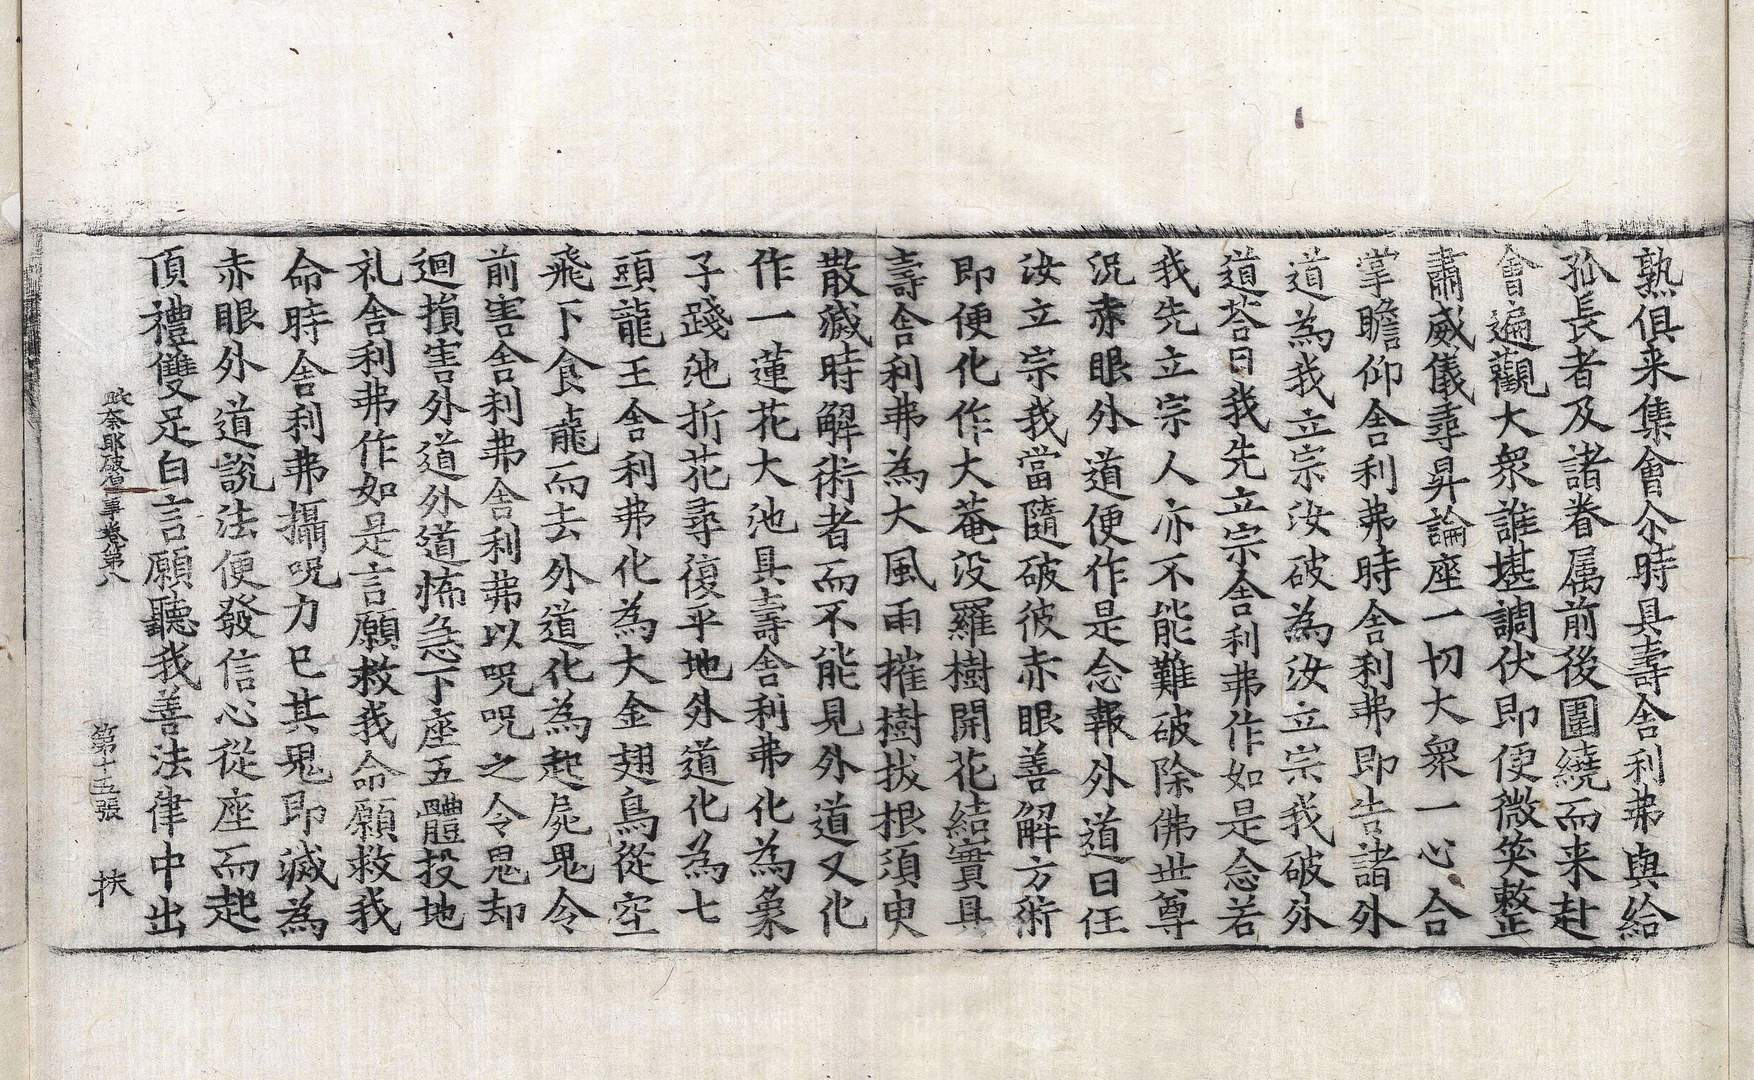 熟俱来集會尒時具壽舍利弗與給
孤長者及諸眷属前後圍繞而来赴
會遍觀大衆誰堪調伏即便微笑整
肅威儀尋昇論座一切大衆一心合
掌瞻仰舍利弗時舍利弗即告諸外
道為我立宗汝破為汝立宗我破外
道荅曰我先立宗舍利弗作如是念若
我先立宗人亦不能難破除佛世尊
況赤眼外道便作是念報外道曰任
汝立宗我當隨破彼赤眼善解方術
即便化作大菴没羅樹開花結實具
壽舍利弗為大風雨摧樹拔根須臾
散滅時解術者而不能見外道又化
作一蓮花大池具壽舍利弗化為象
子踐池折花尋復平地外道化為七
頭龍王舍利弗化為大金翅鳥從空
飛下食龍而去外道化為起屍鬼令
前害舍利弗舍利弗以呪呪之令鬼却
迴損害外道外道怖急下座五體投地
礼舍利弗作如是言願救我命願救我
命時舍利弗攝呪力已其鬼即滅為
赤眼外道說法便發信心從座而起
頂禮雙足白言願聽我善法律中出
毗奈耶破僧事卷第八 第十五張 扶